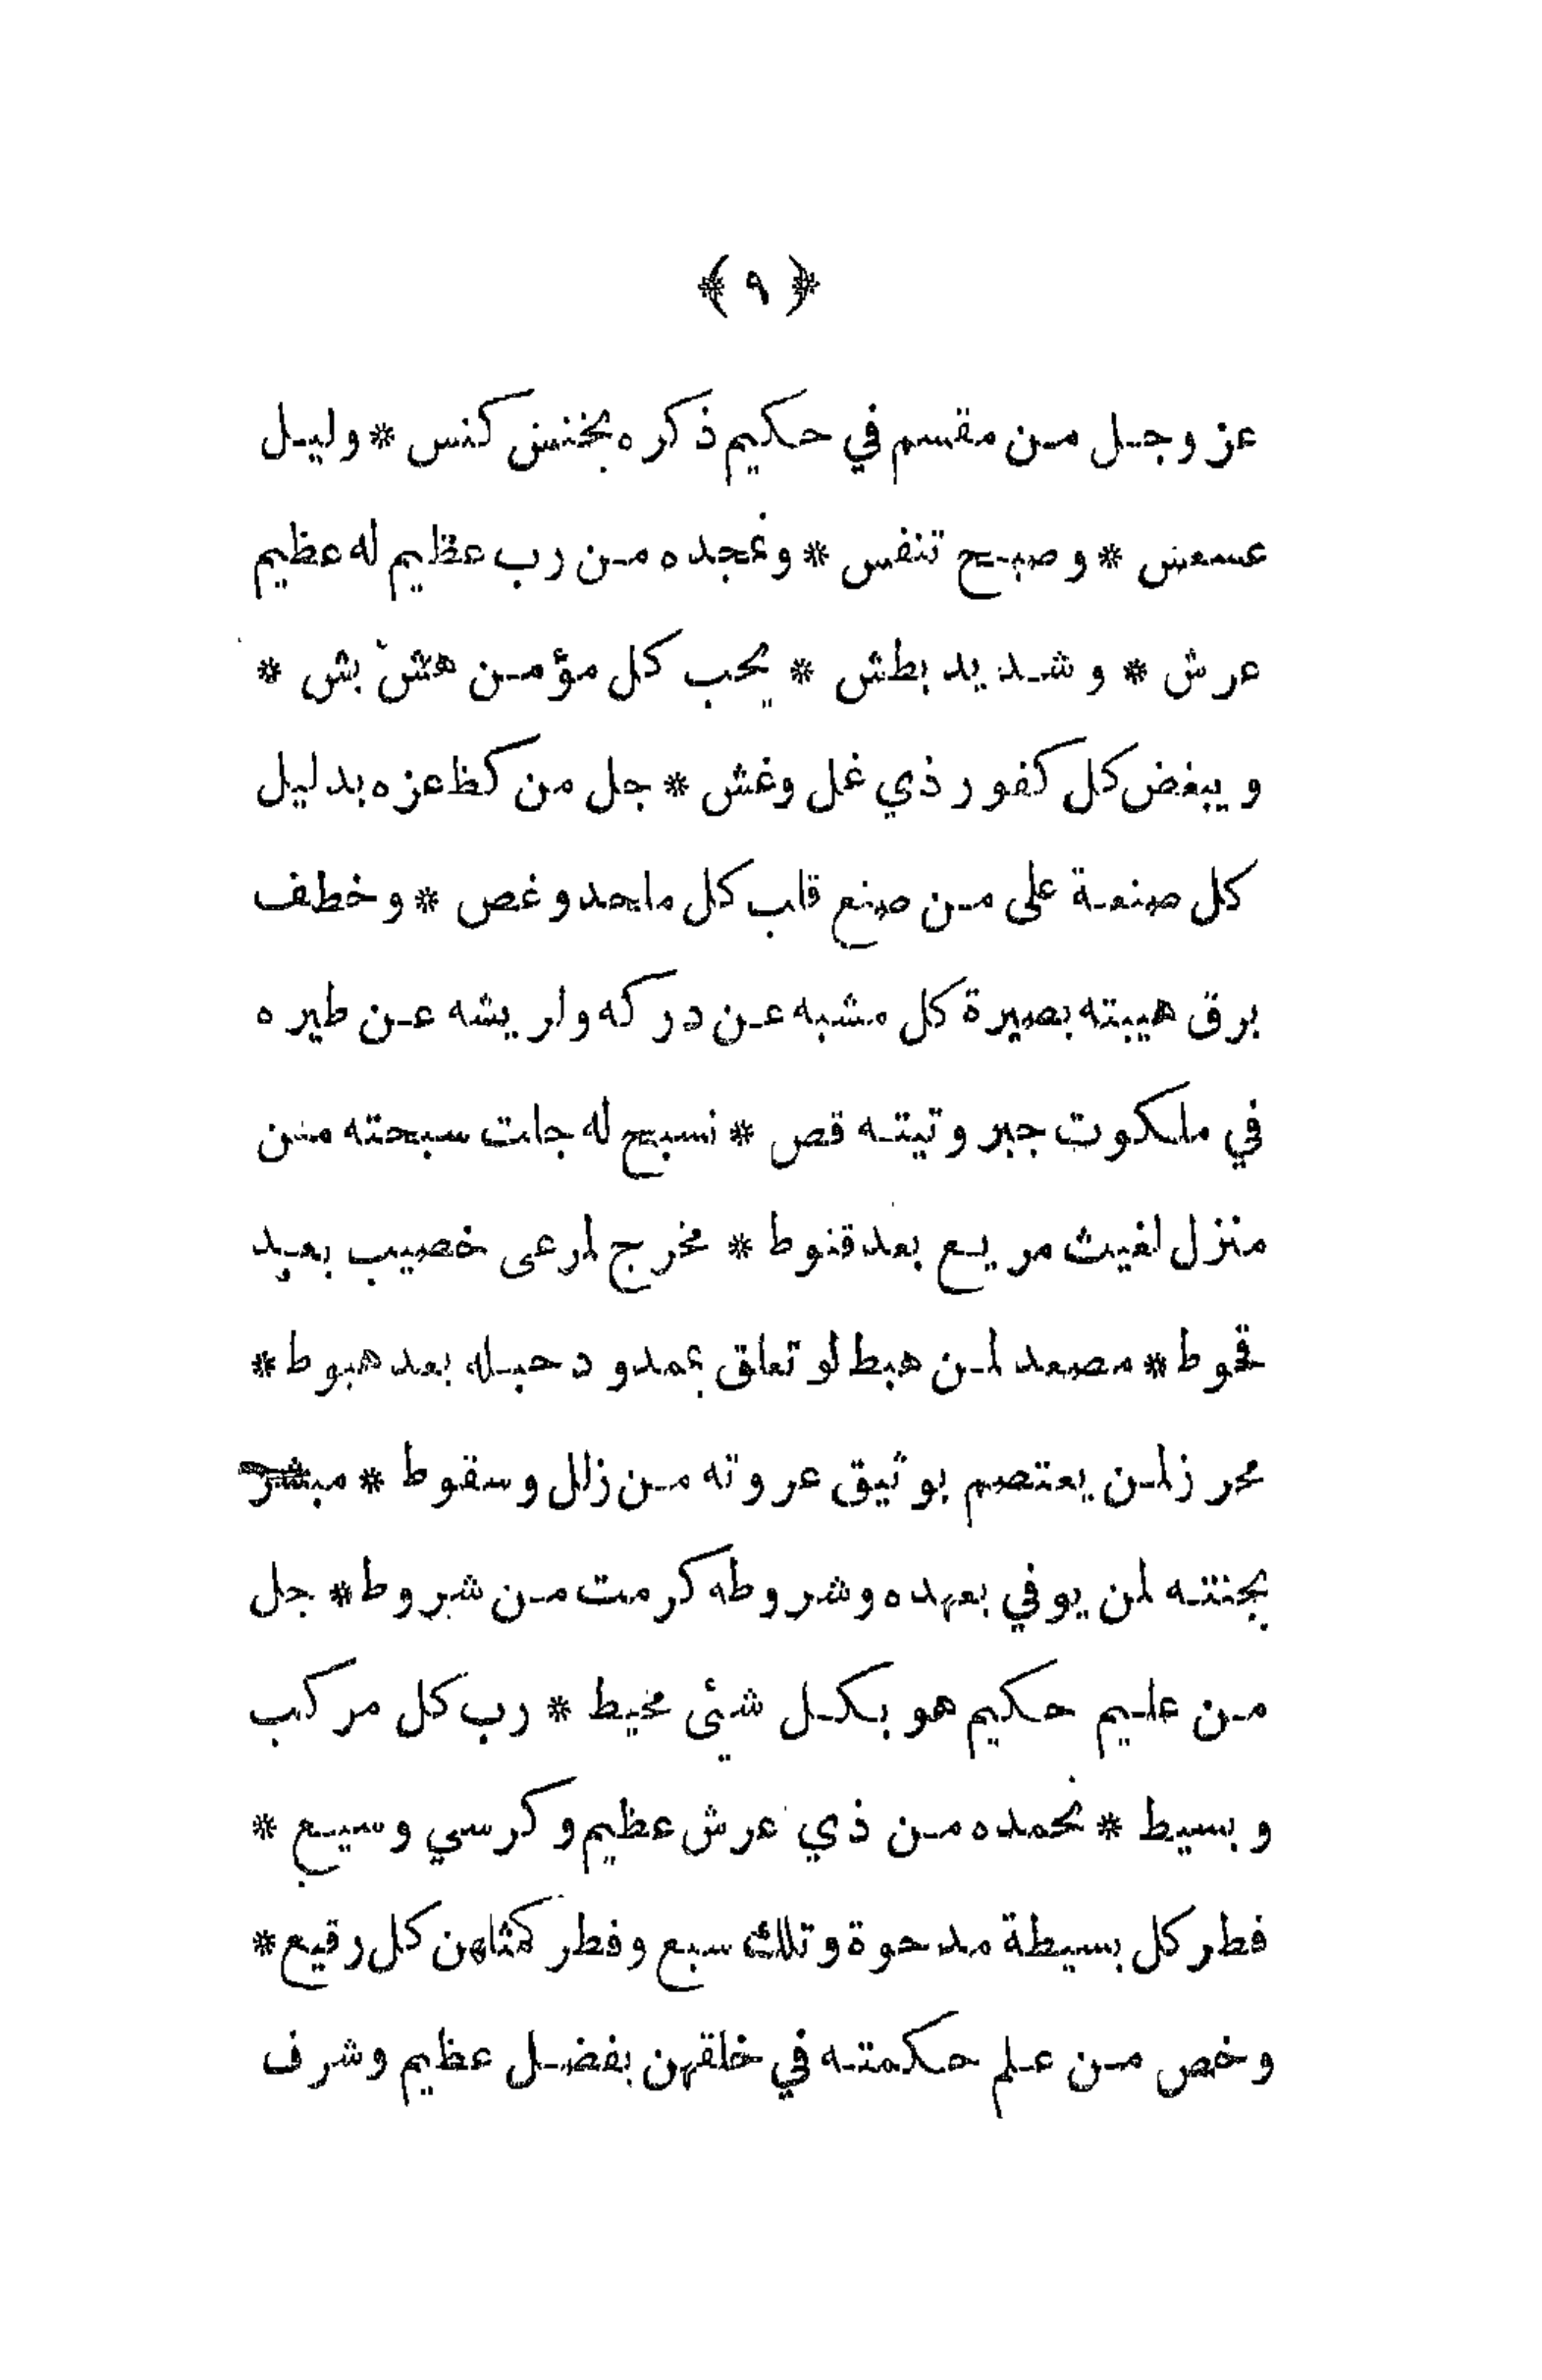 ﴿ ٩ ﴾
عز وجل من مقسم في حكيم ذكره بخنس كنس * وليل
عسعس * وصبح تنفس * ونمجده من رب عظيم له عظيم
عرش * وشديد بطش * يحب كل مؤمن هش بش *
ويبغض كل كفور ذي غل وغش * جل من كظ عزه بدليل
كل صنعة على من صنع قلب كل ملحد وغص * وخطف
برق هيبته بصيرة كل مشبه عن دركه ولريشه عن طيره
في ملكوت جبروتيته قص * نسبح له جلت سبحته من
منزل لغيث مريع بعد قنوط * مخرج لمرعى خصيب بعيد
قحوط * مصعد لمن هبط لو تعلق بممدود حبله بعد هبوط *
محرز لمن يعتصم بوثيق عروته من زلل وسقوط * مبشر
بجنته لمن يوفي بعهده وشروطه كرمت من شروط * جل
من عليم حكيم هو بكل شيئ محيط * رب كل مركب
وبسيط * نحمده من ذي عرش عظيم وكرسي وسيع *
فطر كل بسيطة مدحوة وتلك سبع وفطر كمثلهن كل رقيع *
وخص من علم حكمته في خلقهن بفضل عظيم وشرف